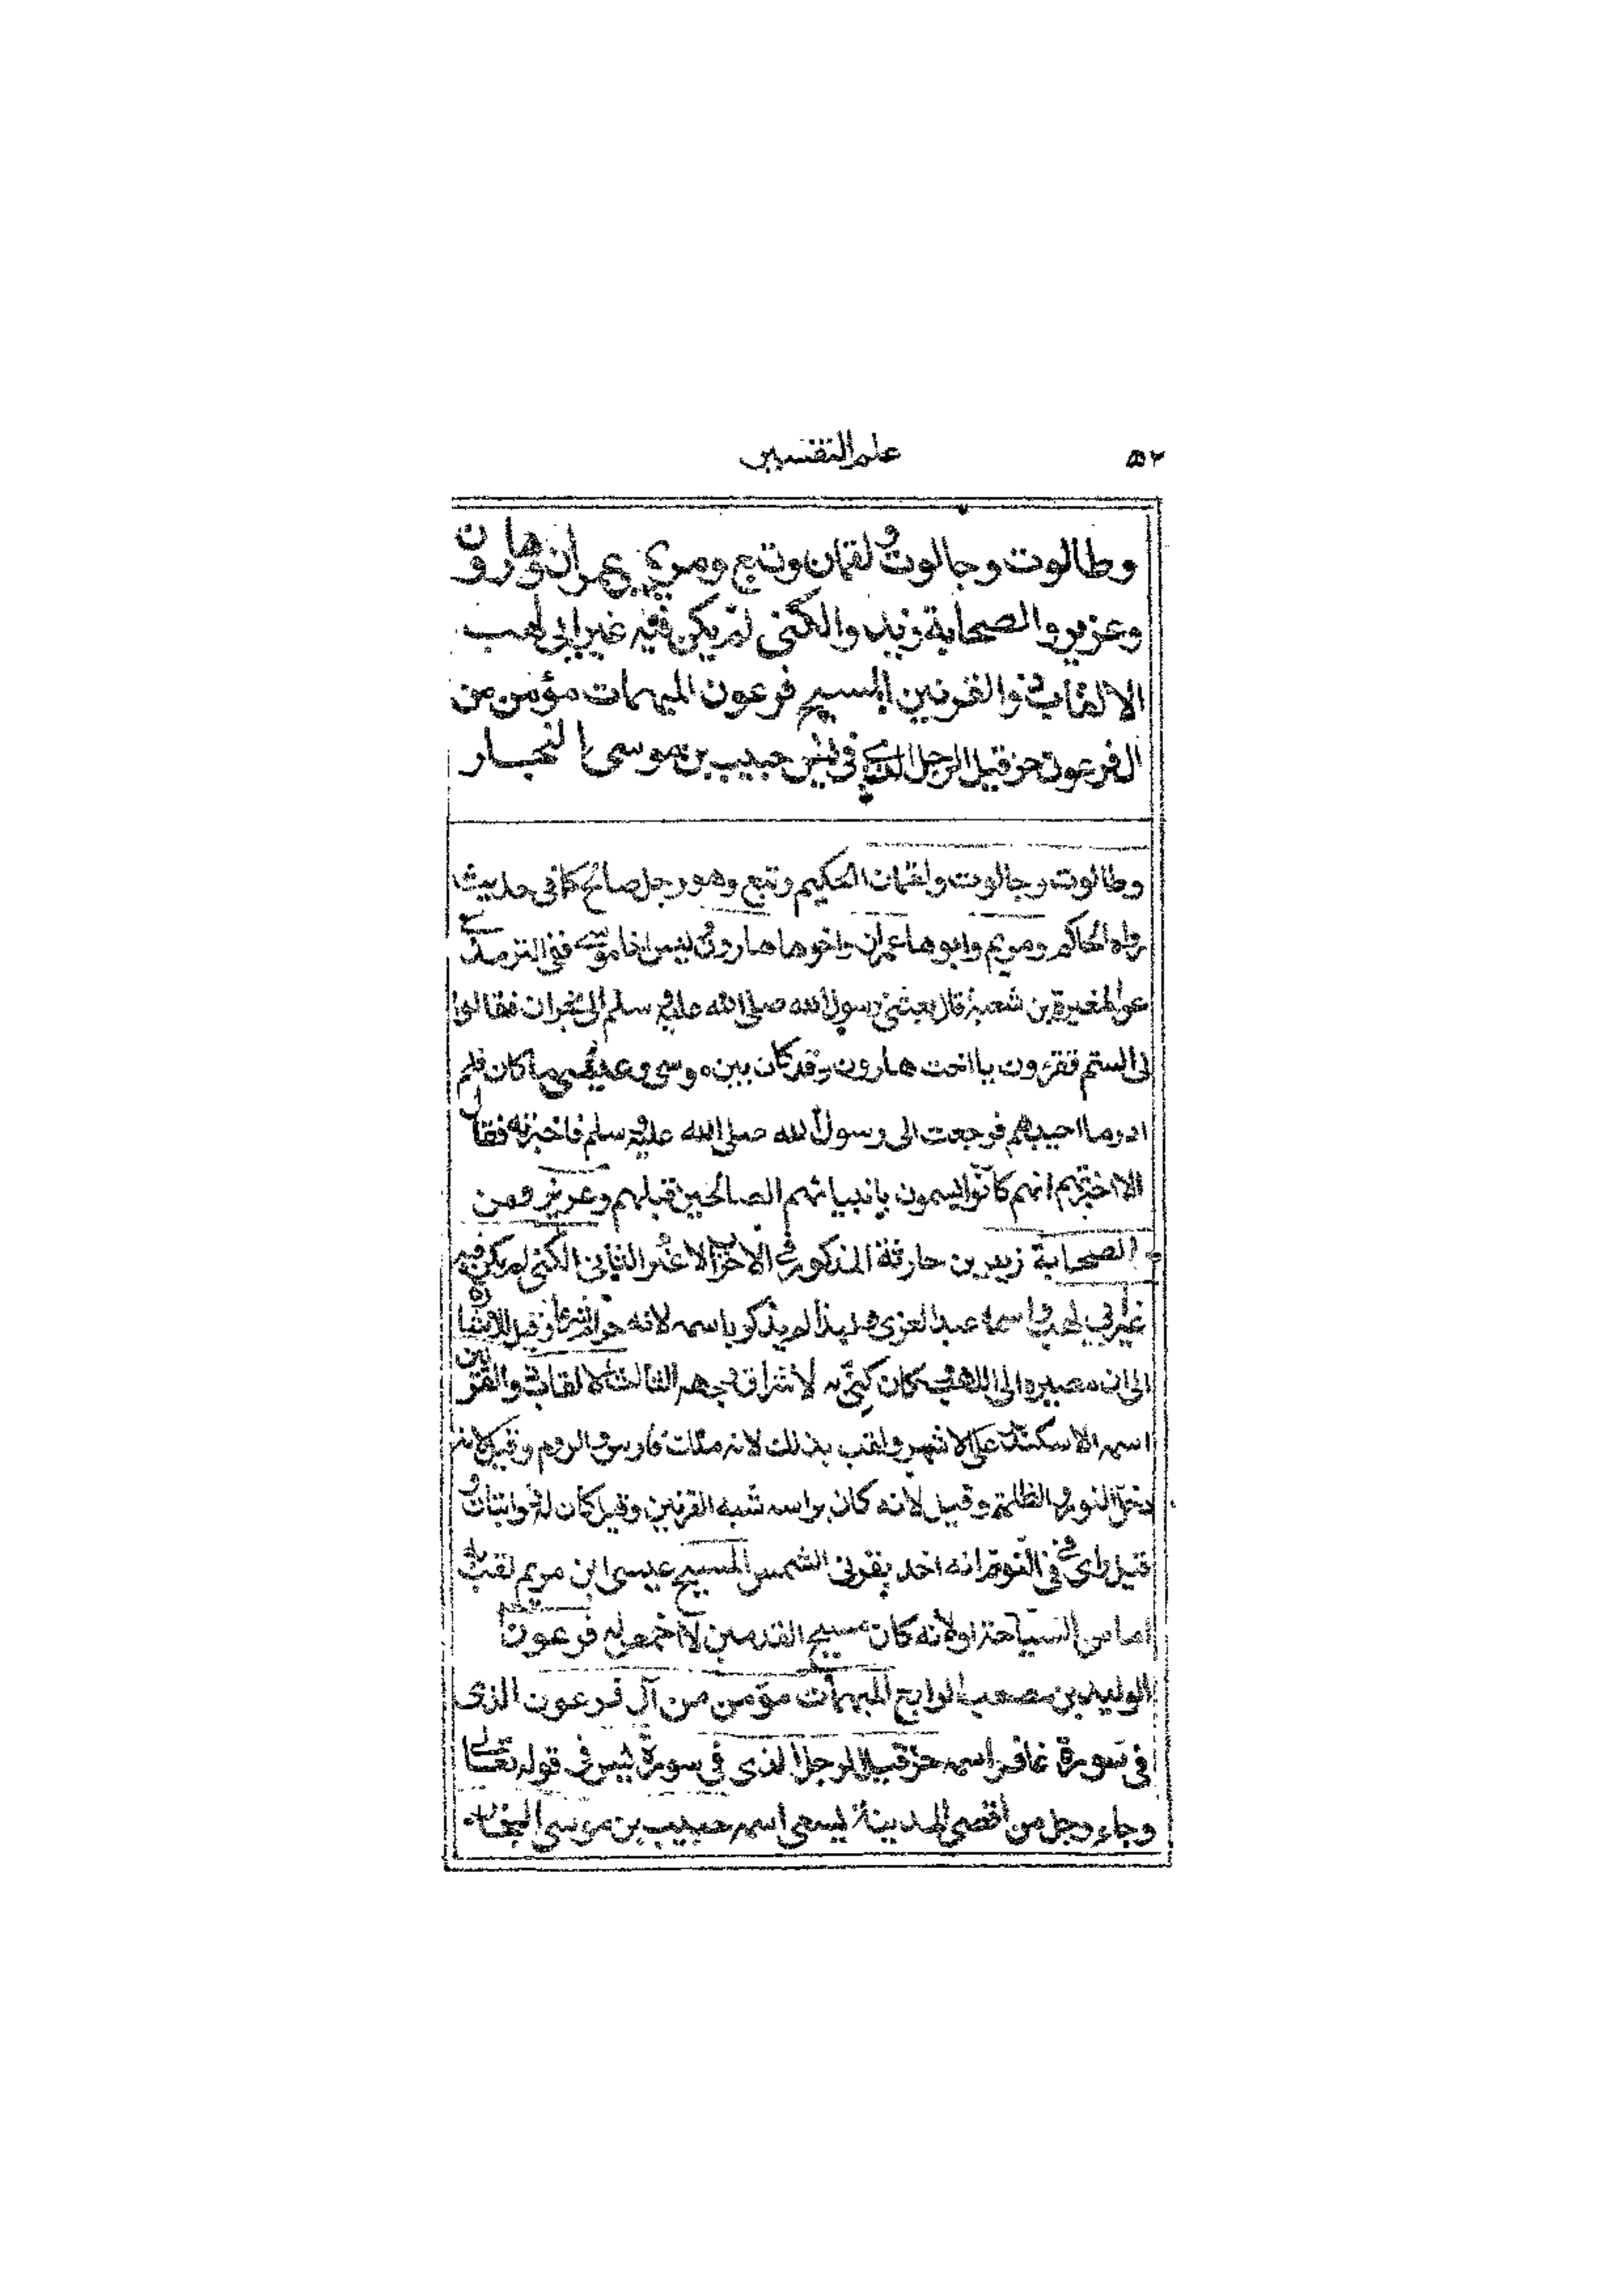 ٥٢ علم التفسير
وطالوت وجالوت ولقمان وتبع ومريم وعمران وهارون
وعزير والصحابة زيد والكنى لم يكن فيه غير ابي لهب
الالقاب ذوالقرنين المسيح فرعون المبهمات مؤمن من
ال فرعون حزقيل الرجل الذي في يس حبيب بن موسى النجار
وطالوت وجالوت ولقمان الحكيم وتبع وهو رجل صالح كما في حديث
رواه الحاكم ومريم وابوها عمران واخوها هارون وليس اخا موسى ففي الترمذي
عن المغيرة بن شعبة قال بعثني رسول الله صلى الله عليه وسلم الى نجران فقالوا
لي الستم تقرءون يا اخت هارون وقد كان بين موسى وعيسى ما كان فلم
ادر ما اجيبهم فرجعت الى رسول الله صلى الله عليه وسلم فاخبرته فقال
الا اخبرتهم انهم كانوا يسمون بانبيائهم والصالحين قبلهم وعزير ومن
الصحابة زيد بن حارثة المذكور في الاحزاب لا غير الثاني الكنى لم يكن فيه
غير ابي لهب واسمه عبد العزى ولهذا لم يذكر باسمه لانه حرام شرعا وقيل للاشارة
الى ان مصيره الى اللهب وكان كني به لاشراق وجهه الثالث الالقاب ذوالقرنين
اسمه الاسكندر على الاشهر ولقب بذلك لانه ملك فارس والروم وقيل لانه
دخل النور والظلمة وقيل لانه كان براسه شبه القرنين وقيل كان له ذوابتان و
قيل راى في النوم انه اخذ بقرني الشمس المسيح عيسى ابن مريم لقب به
اما من السياحة او لانه كان مسيح القدمين لا اخمص له فرعون
الوليد بن مصعب الرابع المبهمات مؤمن من آل فرعون الذى
في سورة غافر اسمه حزقيل الرجل الذى في سورة يس في قوله تعالى
وجاء رجل من اقصى المدينة يسعى اسمه حبيب بن موسى النجار